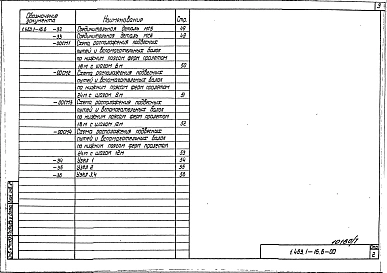 3
Обозначение документа
Наименование
Стр.
1.463.1-16.6 -32 Соединительная деталь МС5 49
-33 Соединительная деталь МС6 49
-00СМ1 Схема расположения подвесных
путей и вспомогательных балок
по нижним поясам ферм пролетом
18м с шагом 6м 50
-00СМ2 Схема расположения подвесных
путей и вспомогательных балок
по нижним поясам ферм пролетом
24м с шагом 51
-00СМ3 Схема расположения подвесных
путей и вспомогательных балок
по нижним поясам ферм пролетом
18м с шагом 52
-00СМ4 Схема расположения подвесных
путей и вспомогательных балок
по нижним поясам ферм пролетом
24м с шагом 12м 53
-34 Узел 1 54
-35 Узел 2 55
-36 Узел 3,4 56
10180/1
1.463.1-16.6-00
Стр.
2